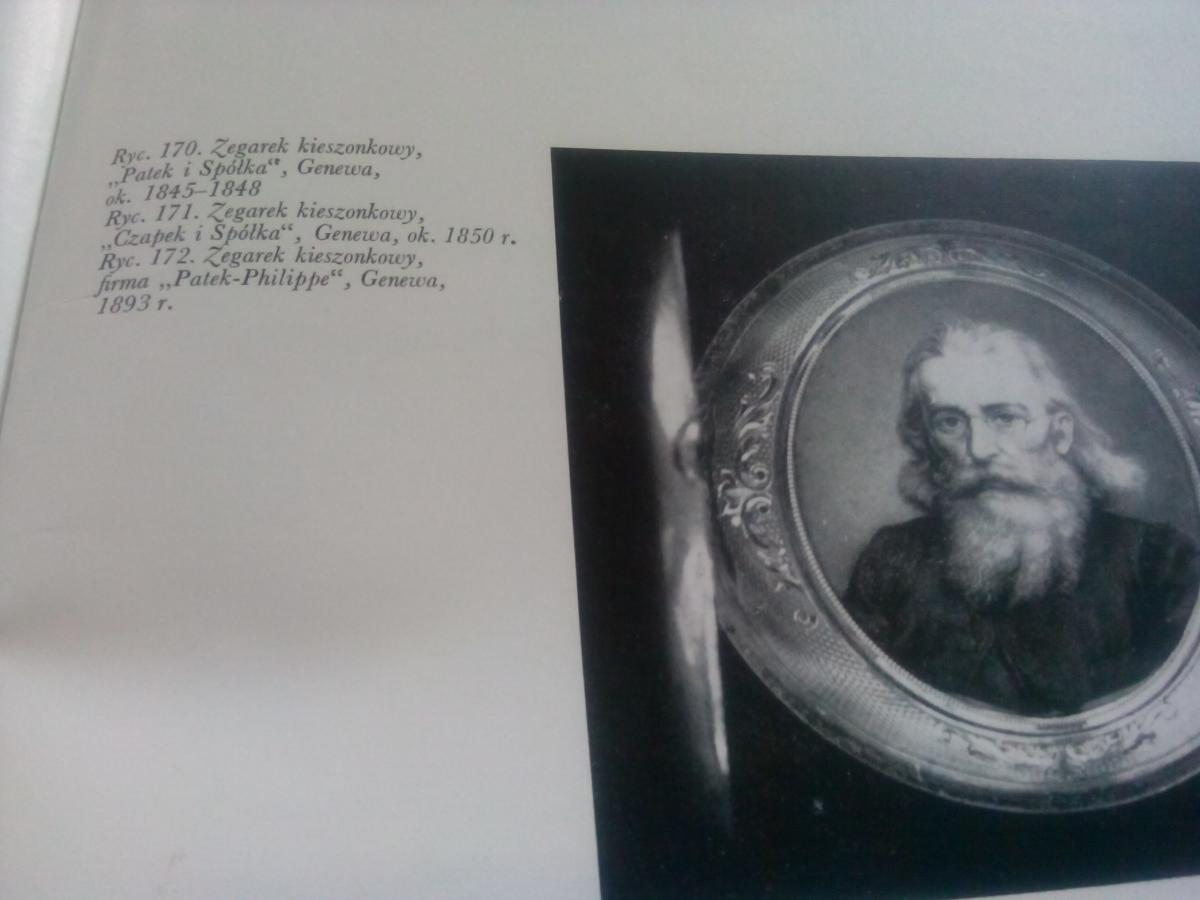 Ryc. 170. Zegarek kieszonkowy,
„Patek i Spółka“, Genewa,
ok. 1845–1848
Ryc. 171. Zegarek kieszonkowy,
„Czapek i Spółka“, Genewa, ok. 1850 r.
Ryc. 172. Zegarek kieszonkowy,
firma „Patek-Philippe“, Genewa,
1893 r.